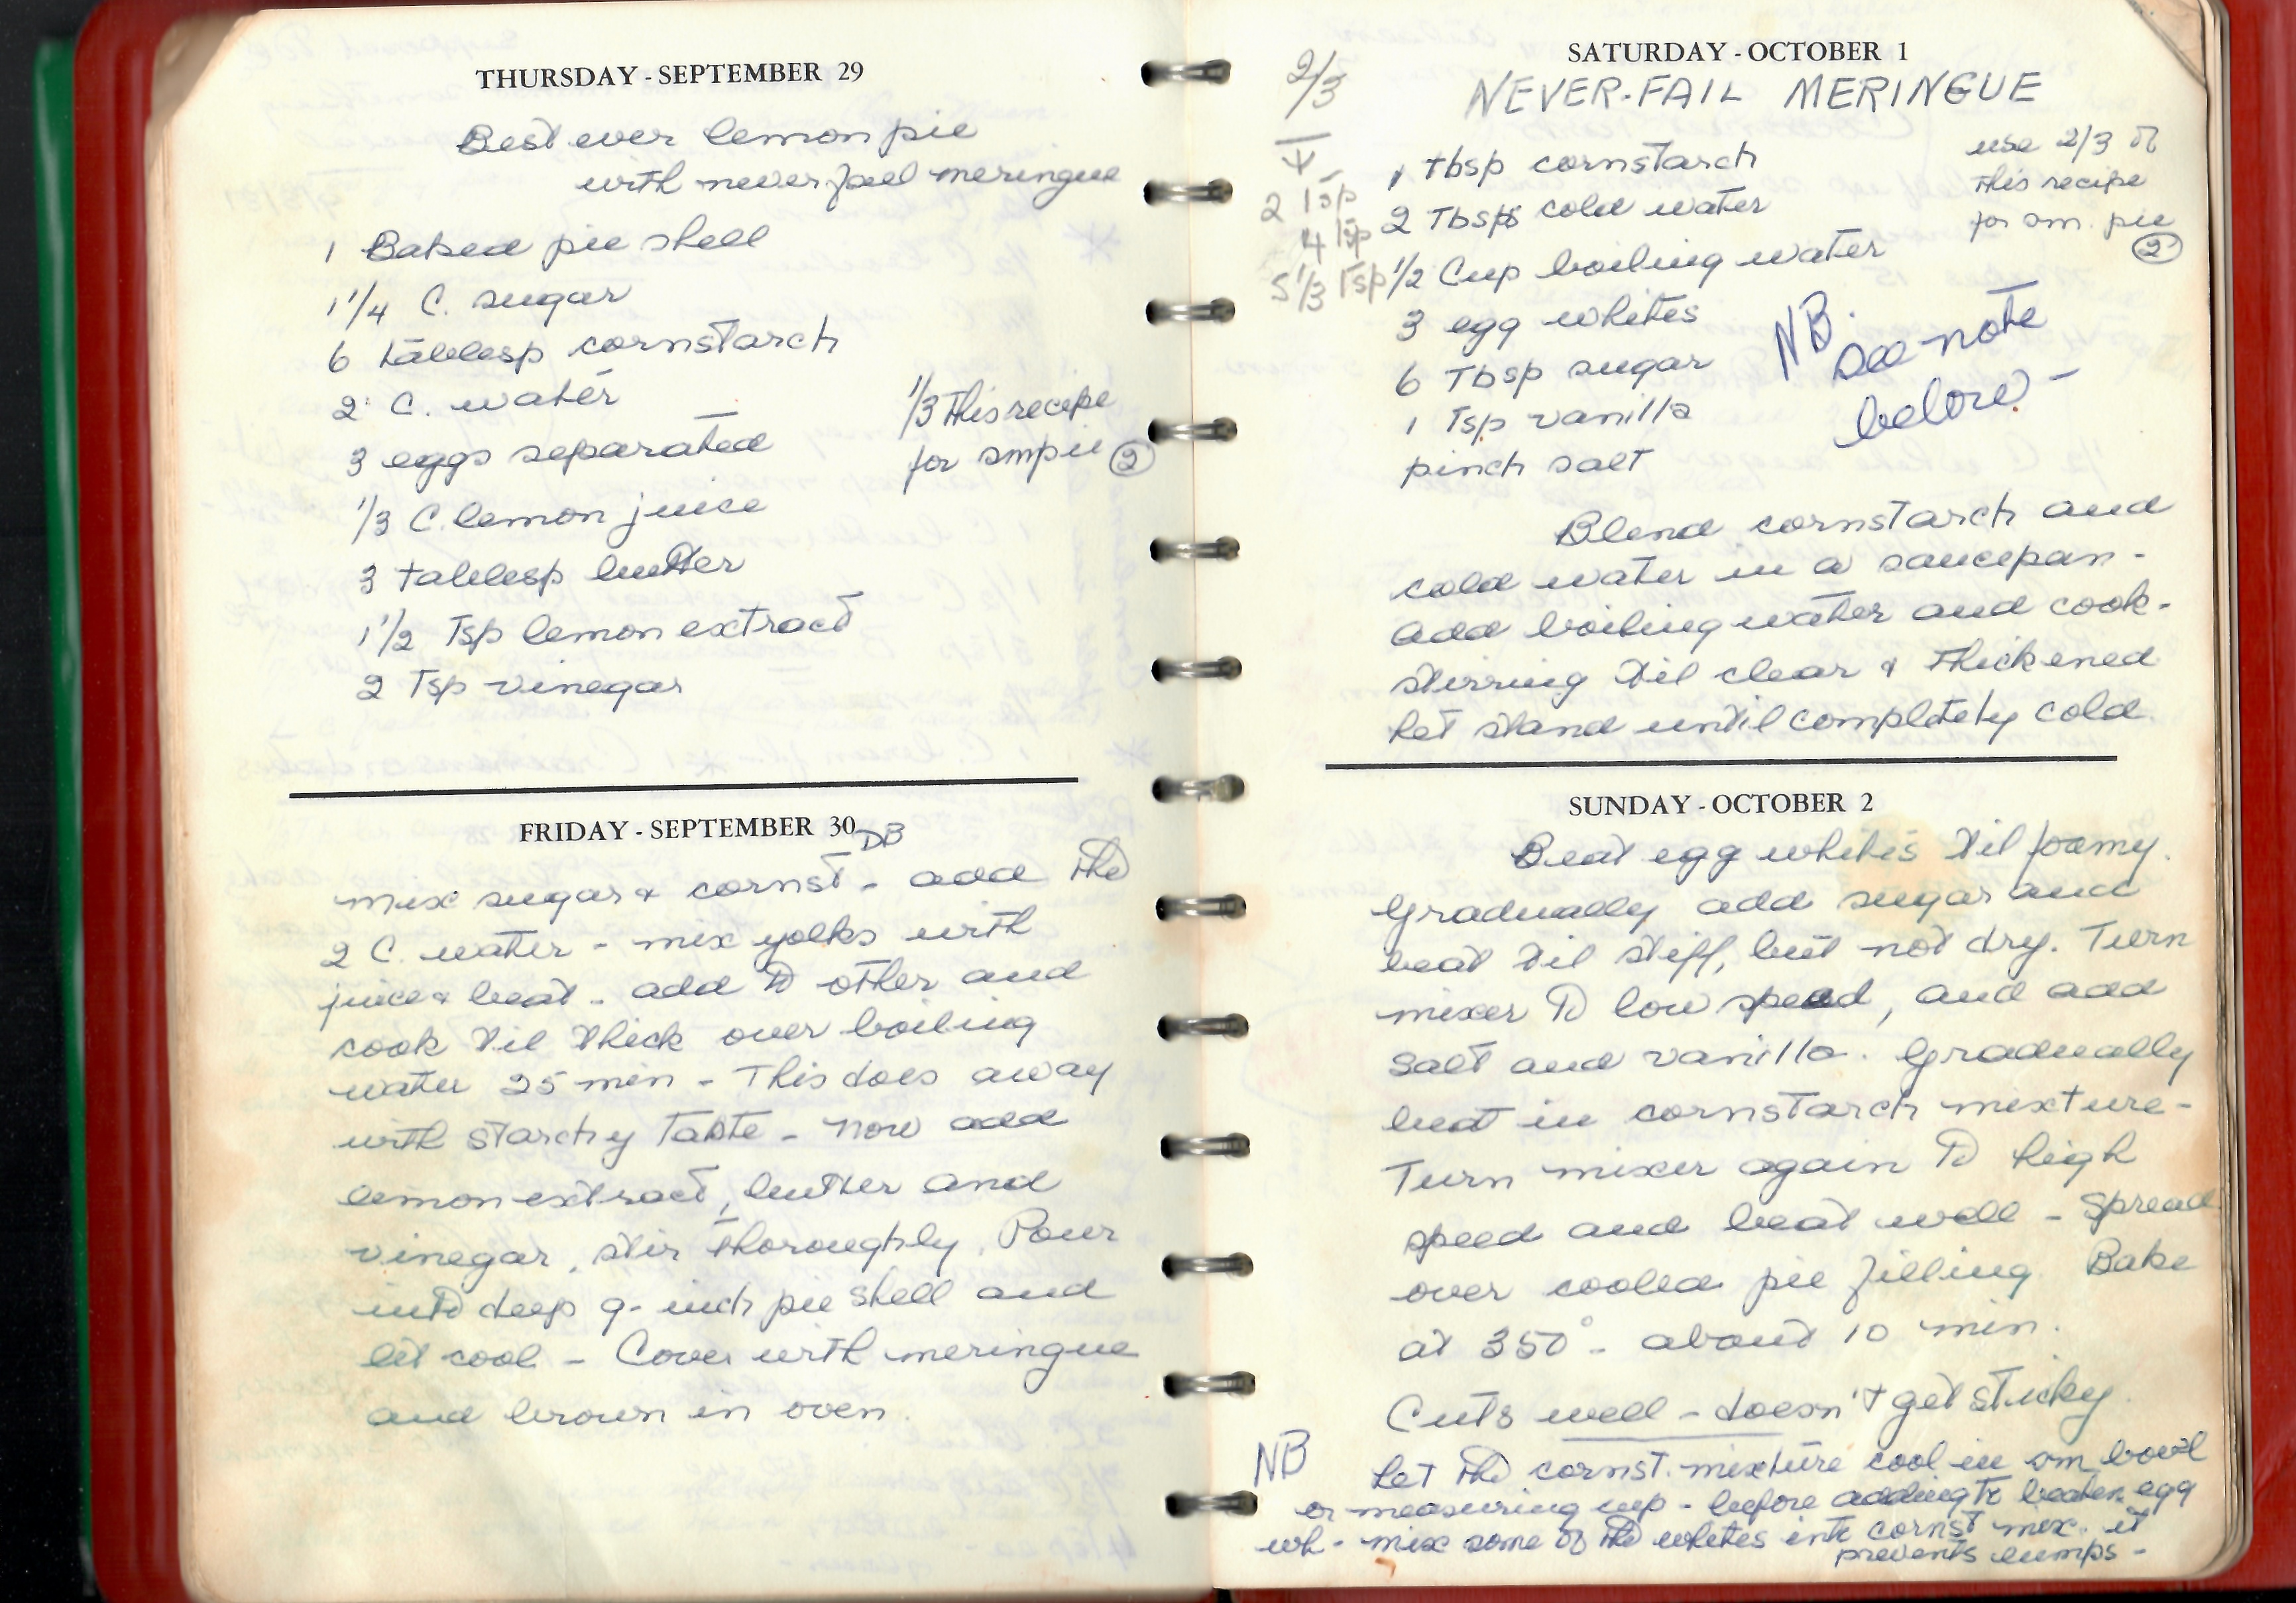 THURSDAY - SEPTEMBER 29
Best ever lemon pie
with never fail meringue
1 Baked pie shell
1 1/4 C. sugar
6 tablesp cornstarch
2 C. water
3 eggs separated
1/3 this recipe
for sm pie (2)
1/3 C. lemon juice
3 tablesp butter
1 1/2 Tsp lemon extract
2 Tsp vinegar
FRIDAY - SEPTEMBER 30
DB
mix sugar & cornst - add the
2 C. water - mix yolks with
juice & beat - add to other and
cook til thick over boiling
water 25 min - This does away
with starchy taste - now add
lemon extract, butter and
vinegar, stir thoroughly. Pour
into deep 9-inch pie shell and
let cool - Cover with meringue
and brown in oven.
SATURDAY - OCTOBER 1
NEVER-FAIL MERINGUE
2/3
2 Tsp
4 Tsp
5 1/3 Tsp
1 Tbsp cornstarch
2 Tbsps cold water
1/2 Cup boiling water
3 egg whites
6 Tbsp sugar
1 Tsp vanilla
pinch salt
use 2/3 of
this recipe
for sm. pie
(2)
NB.
See note
below -
Blend cornstarch and
cold water in a saucepan -
add boiling water and cook -
stirring til clear & thickened
Let stand until completely cold
SUNDAY - OCTOBER 2
Beat egg whites til foamy.
Gradually add sugar and
beat til stiff, but not dry. Turn
mixer to low speed, and add
salt and vanilla. Gradually
beat in cornstarch mixture -
Turn mixer again to high
speed and beat well - Spread
over cooled pie filling. Bake
at 350° - about 10 min.
Cuts well - doesn't get sticky.
NB Let the cornst. mixture cool in sm bowl
or measuring cup - before adding to beaten egg
wh - mix some of the whites into cornst mix. it
prevents lumps -